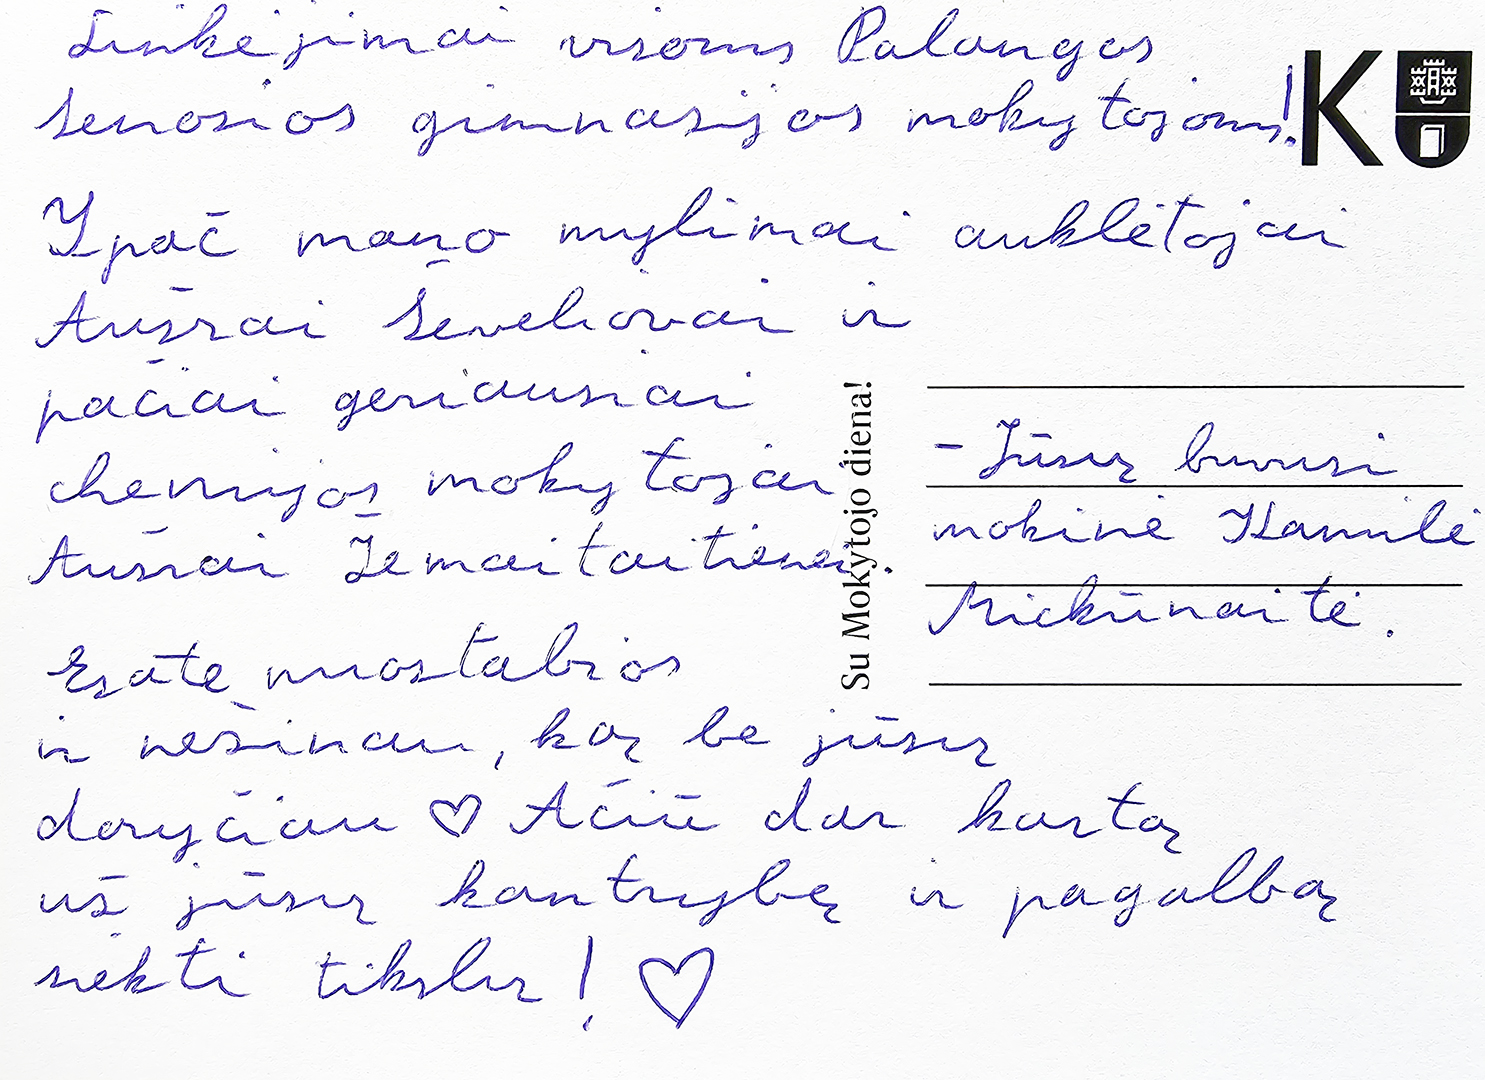 Linkėjimai visoms Palangos
senosios gimnazijos mokytojoms!
Ypač mano mylimai auklėtojai
Aušrai Ševeliovai ir
pačiai geriausiai
chemijos mokytojai
Aušrai Žemaitaitienei.
Esate nuostabios
ir nežinau, ką be jūsų
daryčiau ♡ Ačiū dar kartą
už jūsų kantrybę ir pagalbą
siekti tikslų! ♡
K
Su Mokytojo diena!
- Jūsų buvusi
mokinė Kamilė
Mickūnaitė.